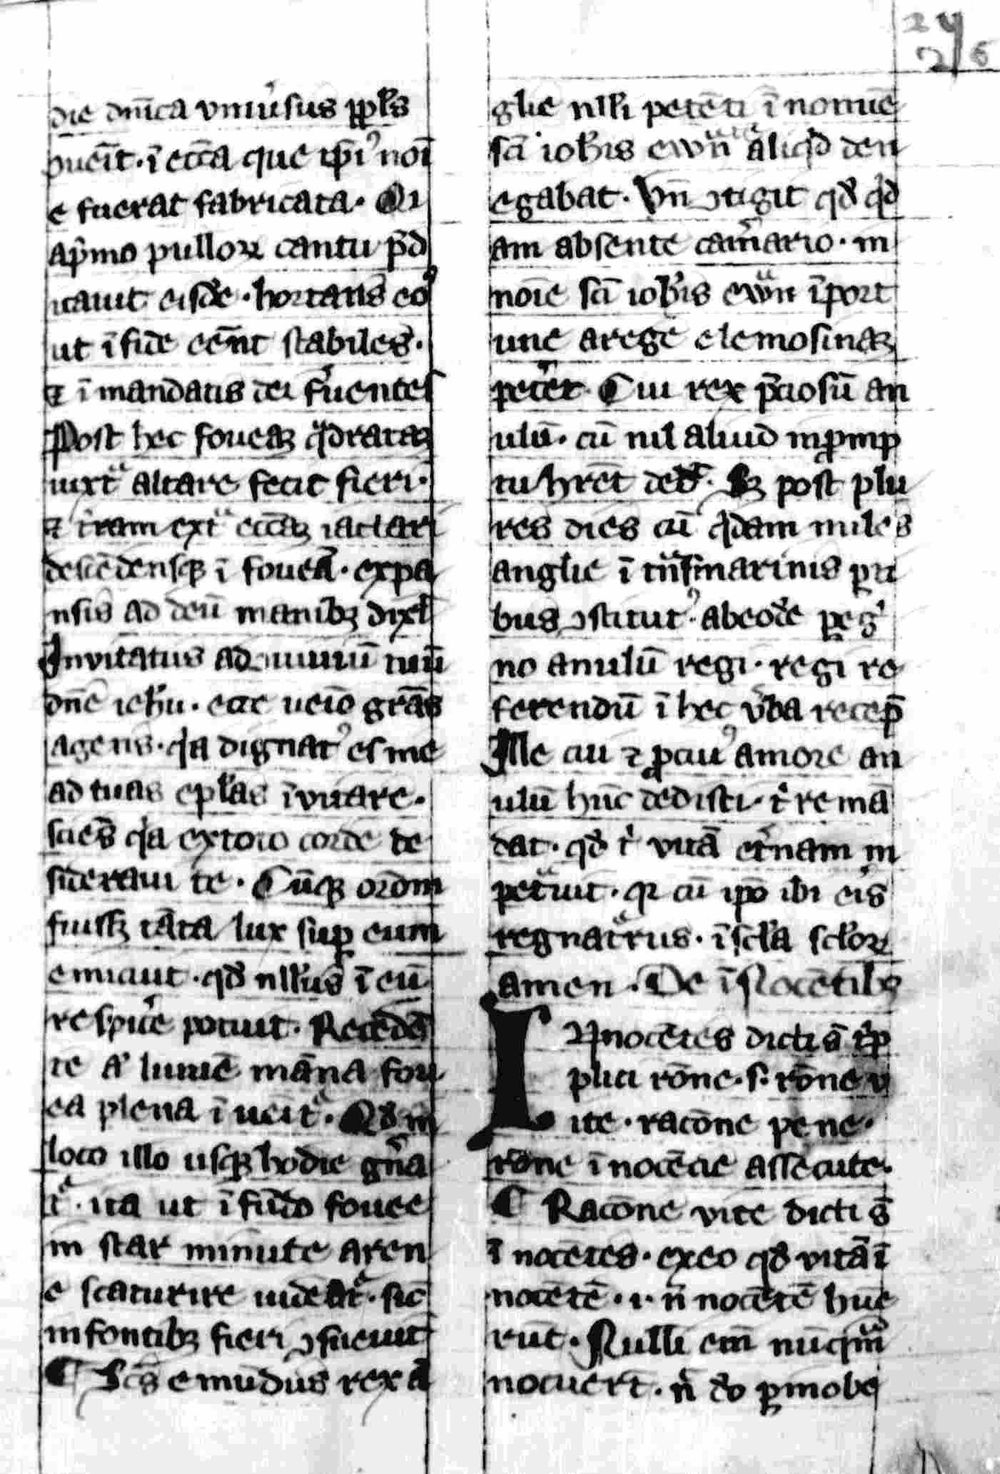 24
25
die dnica vniu'sus ppl's
ɔueit · i ecca que ipi' noi
e fuerat fabricata · Qi
ap'mo pulloꝝ cantu p'd
icauit eisde · hortans eo'
ut i fide eent stabiles ·
⁊ i mandatis dei f'uentes
Post hec foueaꝫ q'drataꝫ
iuxta altare fecit fieri ·
⁊ t'ram exta eccaꝫ iactari
descedensqꝫ i fouea · expa
nsis ad deu manibꝫ dix'
Invitatus ad uiuiu tuu
dne ihu · ecce uenio gras
agens · q'a dignat' es me
ad tuas epl'as iuitare ·
scies q'a extoto corde de
sideraui te · Cuqꝫ oroem
fuissꝫ tata lux sup eum
emicuit · qd' null's i eu
respice potuit · Recede
te a' lumie manna fou
ea plena iueit' · Qd' in
loco illo usqꝫ hodie gn'a
t' · ita ut i fudo fouee
in star minute aren
e scaturire uideat' · sic
in fontibꝫ fieri ɔsueuit
¶ Scs emudus rex a
glie nlli peteti i nomie
sci iohis ewn' aliq'd den
egabat · Vn ɔtigit qd' q'd
am absente cam'ario · in
noie sci iohis ewn iport
une a rege elemosinaꝫ
pet'et · Cui rex p'ciosu an
ulu · cu nil aliud inpromp
tu h'ret ded' · Sꝫ post plu
res dies cu q'dam miles
anglie i t'nsmarinis p'ti
bus ɔstitut' · ab eode peg'
no anulu regi · regi re
ferendu i hec v'ba recep
Ille cui ⁊ p cui' amore an
ulu hu'c dedisti · t' rema
dat · qd' t' vita et'nam in
pet'uit · qr cu ipo ibi eis
regnat'rus · i scl'a scl'oꝝ
amen · De inocetibꝫ
Innocetes dicti s t'p
plici rone · s · rone v
ite · racone pene ·
rone i nocecie assecute ·
¶ Racone vite dicti s
i nocetes · ex eo qd' vita i
nocete · i · n nocete hue
rut · Nulli em nuq'm
nocuert · n do p inobe